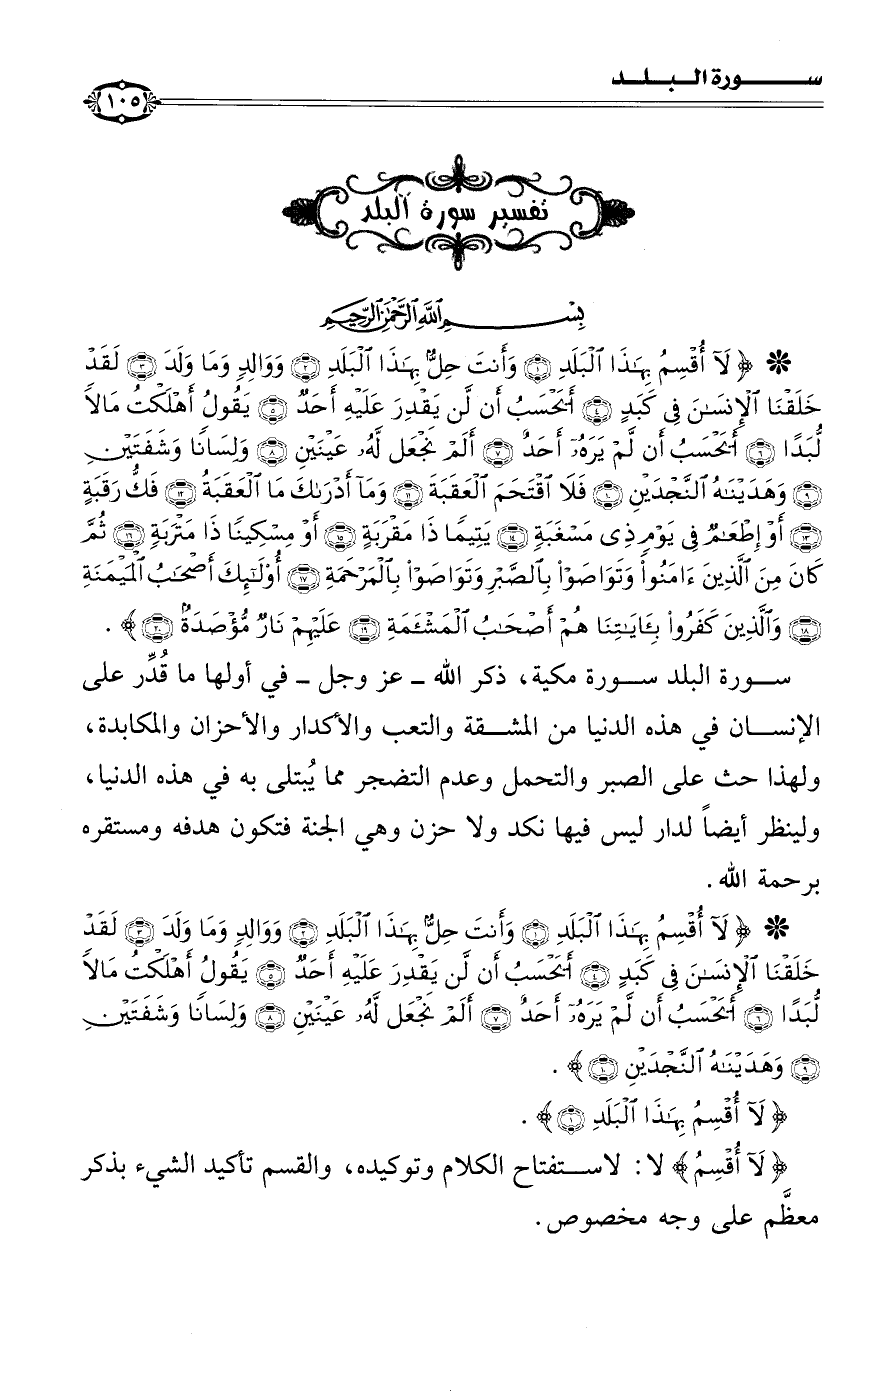 سورة البلد
١٠٥
تفسير سورة البلد
بِسْمِ ٱللَّهِ ٱلرَّحْمَٰنِ ٱلرَّحِيمِ
* ﴿ لَآ أُقْسِمُ بِهَٰذَا ٱلْبَلَدِ ١ وَأَنتَ حِلٌّۢ بِهَٰذَا ٱلْبَلَدِ ٢ وَوَالِدٍ وَمَا وَلَدَ ٣ لَقَدْ
خَلَقْنَا ٱلْإِنسَٰنَ فِى كَبَدٍ ٤ أَيَحْسَبُ أَن لَّن يَقْدِرَ عَلَيْهِ أَحَدٌ ٥ يَقُولُ أَهْلَكْتُ مَالًا
لُّبَدًا ٦ أَيَحْسَبُ أَن لَّمْ يَرَهُۥٓ أَحَدٌ ٧ أَلَمْ نَجْعَل لَّهُۥ عَيْنَيْنِ ٨ وَلِسَانًا وَشَفَتَيْنِ
٩ وَهَدَيْنَٰهُ ٱلنَّجْدَيْنِ ١٠ فَلَا ٱقْتَحَمَ ٱلْعَقَبَةَ ١١ وَمَآ أَدْرَىٰكَ مَا ٱلْعَقَبَةُ ١٢ فَكُّ رَقَبَةٍ
١٣ أَوْ إِطْعَٰمٌ فِى يَوْمٍ ذِى مَسْغَبَةٍ ١٤ يَتِيمًا ذَا مَقْرَبَةٍ ١٥ أَوْ مِسْكِينًا ذَا مَتْرَبَةٍ ١٦ ثُمَّ
كَانَ مِنَ ٱلَّذِينَ ءَامَنُوا۟ وَتَوَاصَوْا۟ بِٱلصَّبْرِ وَتَوَاصَوْا۟ بِٱلْمَرْحَمَةِ ١٧ أُو۟لَٰٓئِكَ أَصْحَٰبُ ٱلْمَيْمَنَةِ
١٨ وَٱلَّذِينَ كَفَرُوا۟ بِـَٔايَٰتِنَا هُمْ أَصْحَٰبُ ٱلْمَشْـَٔمَةِ ١٩ عَلَيْهِمْ نَارٌ مُّؤْصَدَةٌۢ ٢٠ ﴾ .
سورة البلد سورة مكية، ذكر الله ـ عز وجل ـ في أولها ما قُدِّر على
الإنسان في هذه الدنيا من المشقة والتعب والأكدار والأحزان والمكابدة،
ولهذا حث على الصبر والتحمل وعدم التضجر مما يُبتلى به في هذه الدنيا،
ولينظر أيضاً لدار ليس فيها نكد ولا حزن وهي الجنة فتكون هدفه ومستقره
برحمة الله .
* ﴿ لَآ أُقْسِمُ بِهَٰذَا ٱلْبَلَدِ ١ وَأَنتَ حِلٌّۢ بِهَٰذَا ٱلْبَلَدِ ٢ وَوَالِدٍ وَمَا وَلَدَ ٣ لَقَدْ
خَلَقْنَا ٱلْإِنسَٰنَ فِى كَبَدٍ ٤ أَيَحْسَبُ أَن لَّن يَقْدِرَ عَلَيْهِ أَحَدٌ ٥ يَقُولُ أَهْلَكْتُ مَالًا
لُّبَدًا ٦ أَيَحْسَبُ أَن لَّمْ يَرَهُۥٓ أَحَدٌ ٧ أَلَمْ نَجْعَل لَّهُۥ عَيْنَيْنِ ٨ وَلِسَانًا وَشَفَتَيْنِ
٩ وَهَدَيْنَٰهُ ٱلنَّجْدَيْنِ ١٠ ﴾ .
﴿ لَآ أُقْسِمُ بِهَٰذَا ٱلْبَلَدِ ١ ﴾ .
﴿ لَآ أُقْسِمُ ﴾ لا: لاستفتاح الكلام وتوكيده، والقسم تأكيد الشيء بذكر
معظَّم على وجه مخصوص .